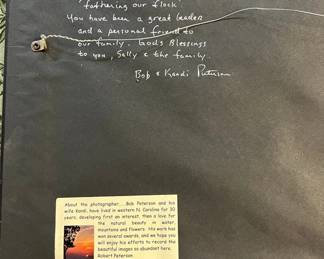 fathering our flock.
You have been a great leader
and a personal friend to
our family. God's Blessings
to you, Sally & the family.
Bob & Kandi Peterson
About the photographer.....Bob Peterson and his
wife Kandi, have lived in western N. Carolina for 30
years, developing first an interest, then a love for
the natural beauty in water,
mountains and flowers. His work has
won several awards, and we hope you
will enjoy his efforts to record the
beautiful images so abundant here.
Robert Peterson